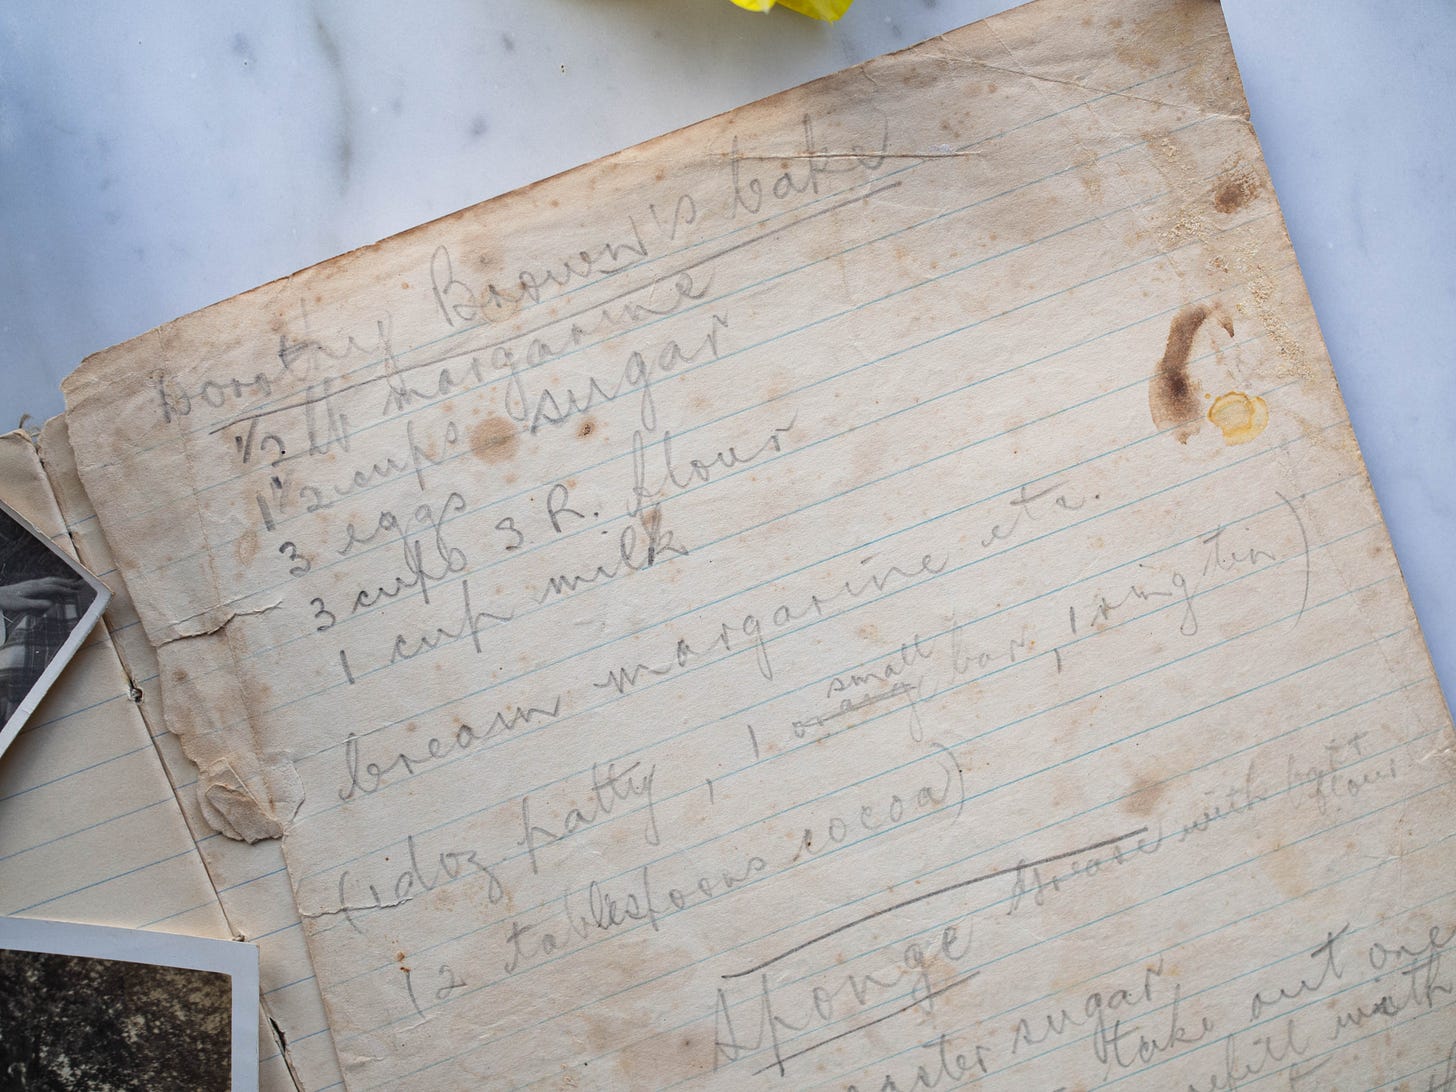 Dorothy Brown's Cake
1/2 lb margarine
1 1/2 cups sugar
3 eggs
3 cups S. R. flour
1 cup milk
Cream margarine etc.
(1 doz patty, 1 orang small bar, 1 ring tin)
(2 tablespoons cocoa)
Sponge Grease with butt
flour
caster sugar
take out one
with